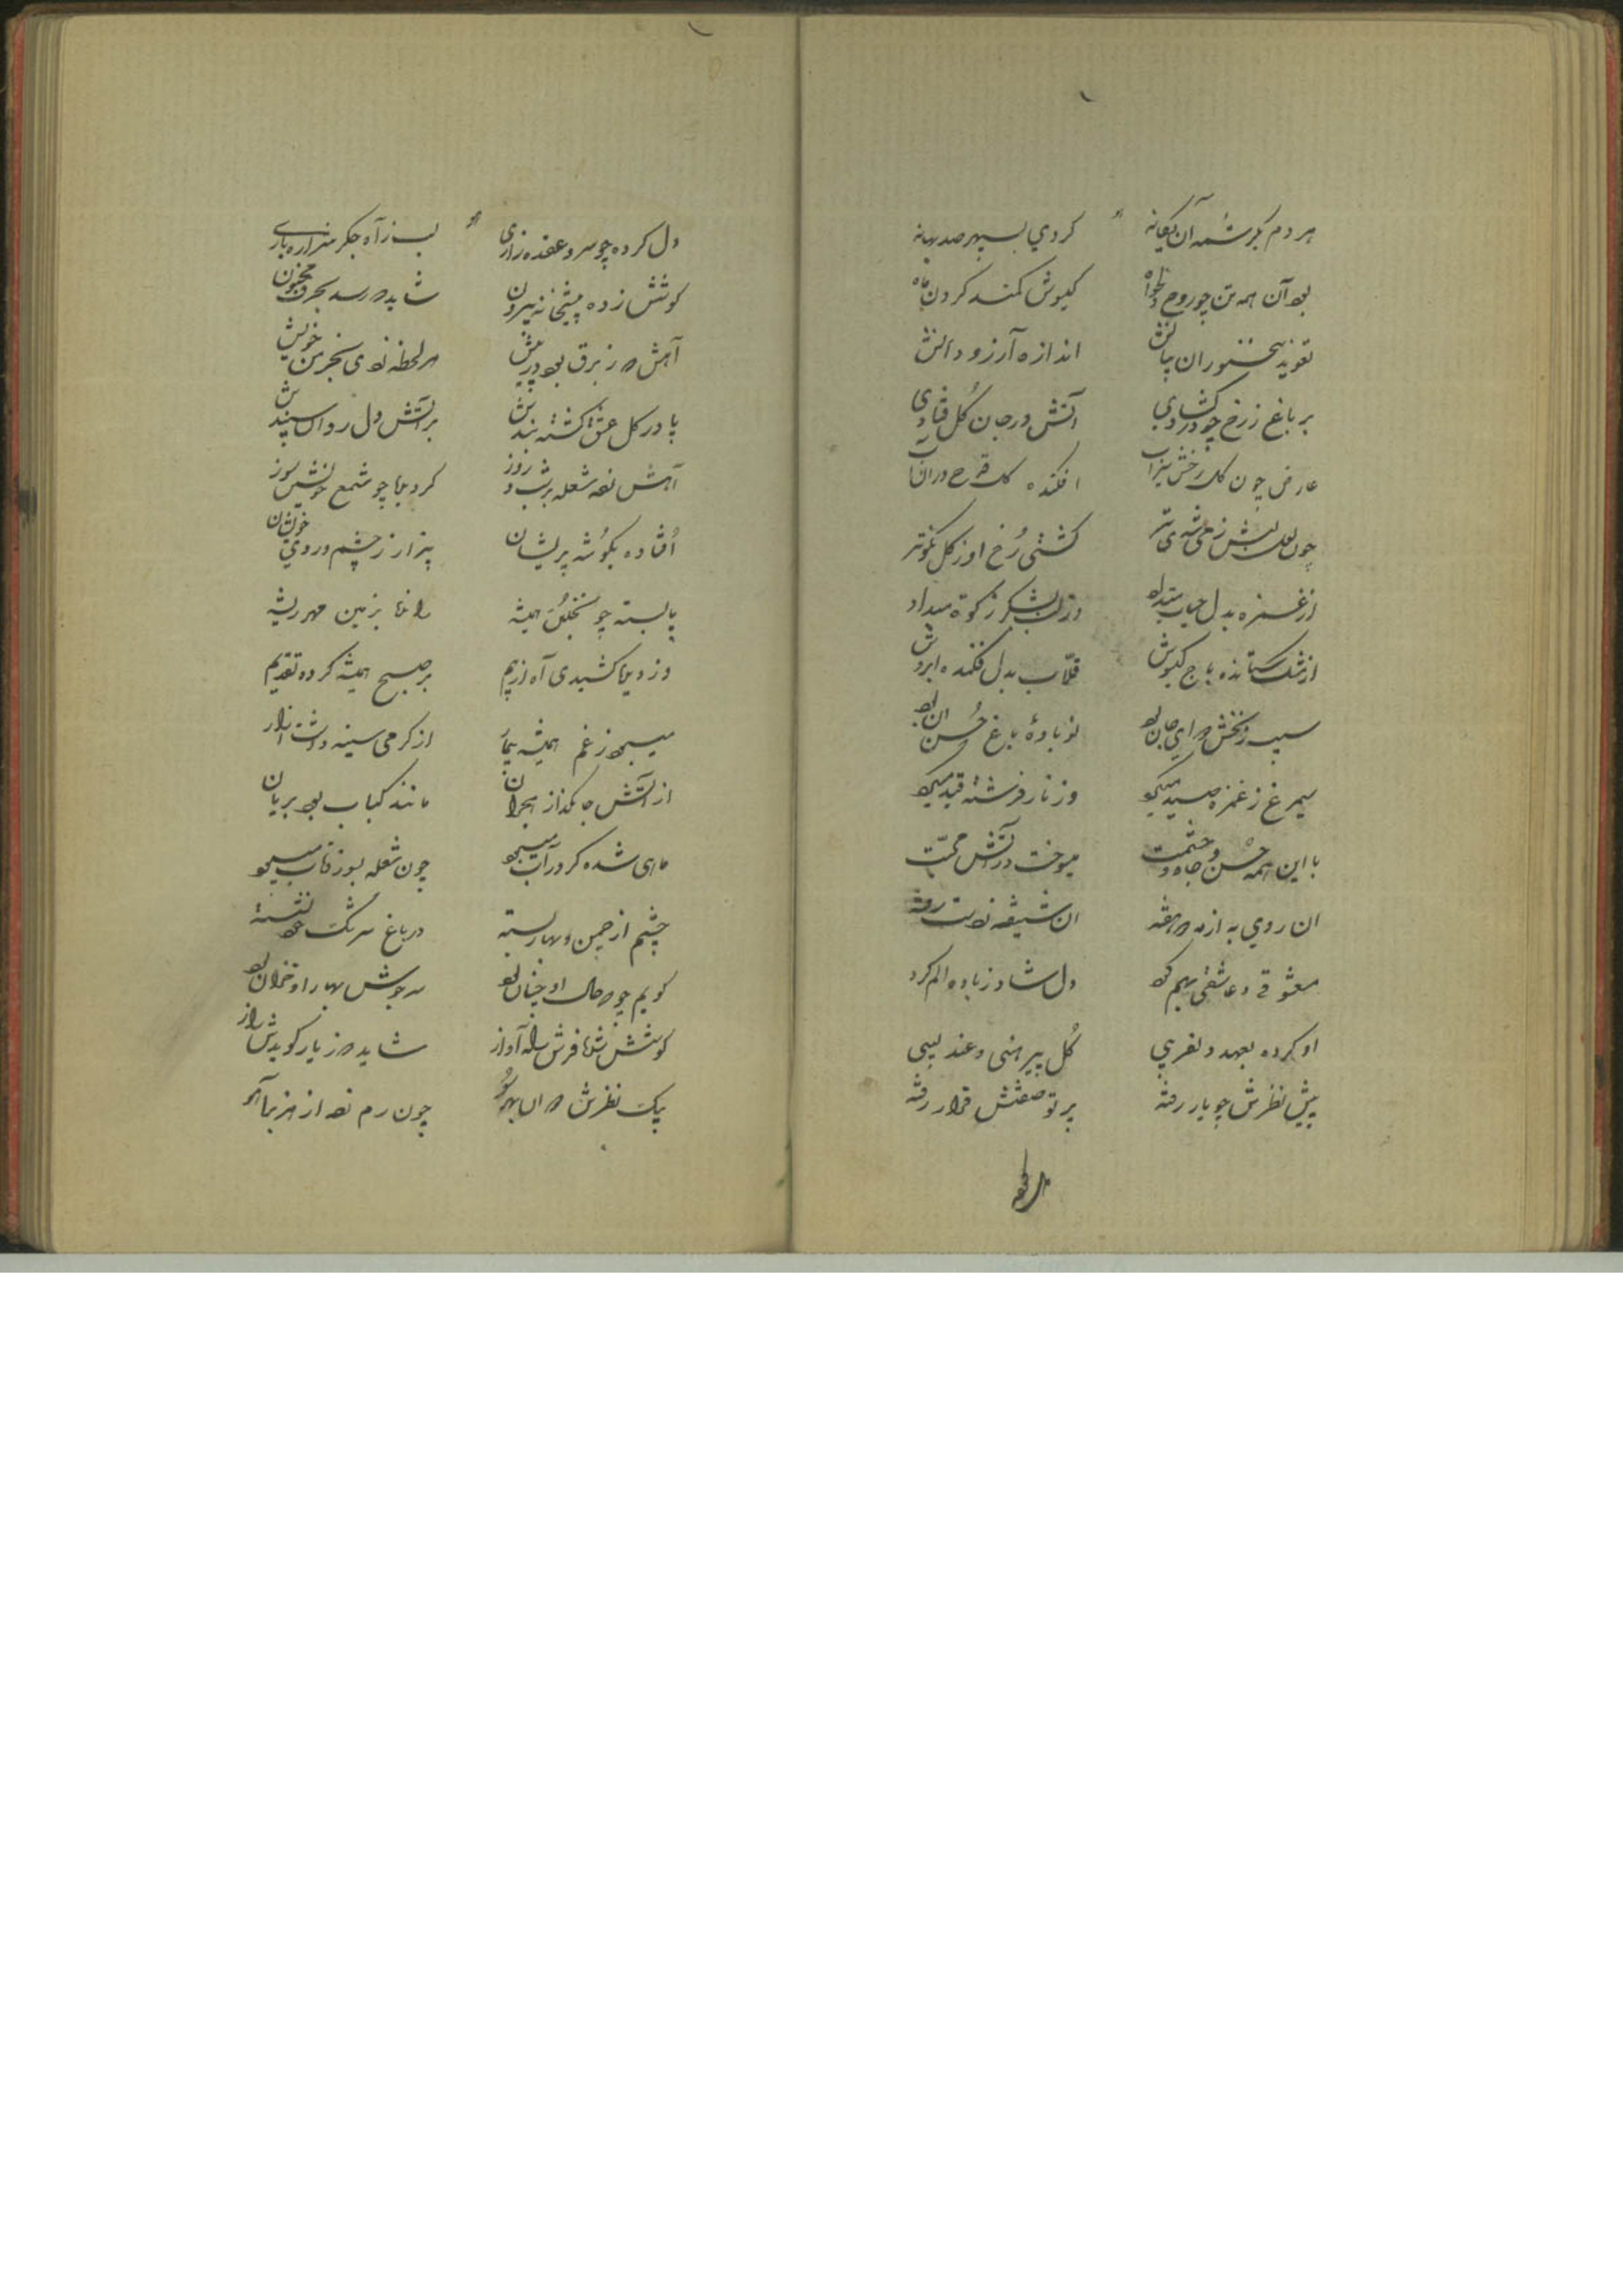 هر دم بکرشمه آن یکانه کردي بسپهر صد بهانه
بود آن همه تن چو روح دلخواه کیسوش کمند کردن ماه
تعویذ سخنوران بیانش اندازه آرزو دهانش
بر باغ ز رخ چو در کشادي آتش در جان کل فتادي
عارض چون کل رخش می ناب افکنده قدح در آن
چون لعل لبش ز می شدی تر کشتی رخ او ز کل نکوتر
از غمزه بدل میداد وز لب شکر زکوة میداد
از مشک ستانده باج کیسوش قلاب بدل فکنده ابروش
سیب زنخش که جان بود نوباوهٔ باغ حسن آن بود
سیمرغ ز غمزه صید میکرد وز ناز فرشته قید میکرد
با این همه حسن و جاه و حشمت میسوخت در آتش محبت
آن روي به از مه دو هفته آن شیفته دست رفته
معشوقی و عاشقی بهم کرد دل شاد ز باده الم کرد
او کرده بعهد دلفریبي کل پیرهنی و عندلیبی
پیش نظرش چو یار رفته پرتو صفتش قرار رفته
دل کرده
دل کرده چو سرو عقده زاری لب ز آه جکر شراره باری
کوشش زده پیشخانه بیرون شاید که رسد بحرف مجنون
آهش که ز برق بود در پیش هر لحظه زدی بخرمن خویش
پا در کل عشق کشته بندش بر آتش دل روان سپندش
آهش زده شعله بر شب و روز کردیده چو شمع خویشتن سوز
افتاده بکوشه پریشان بیزار ز چشم و روي خویشان
پا بسته چو نخل کل همیشه بزمین مهر ریشه
وز دیده کشیدی آه از بیم بر صبح همیشه کرده تقدیم
میبود ز غم همیشه از کرمی سینه داشت
از آتش جانکداز هجران مانند کباب بود بریان
ماهی شده کر در آب میبود چون شعله بسوز و تاب میبود
چشم از چمن و بهار بسته در باغ سرشک خود نشسته
کویم چو که حال او چنان بود سرجوش بهار او خزان بود
کوشش شده فرش راه آواز شاید که ز یار کویدش راز
پیک نظرش که آن بهر سو چون رم زده از هزبر آهو